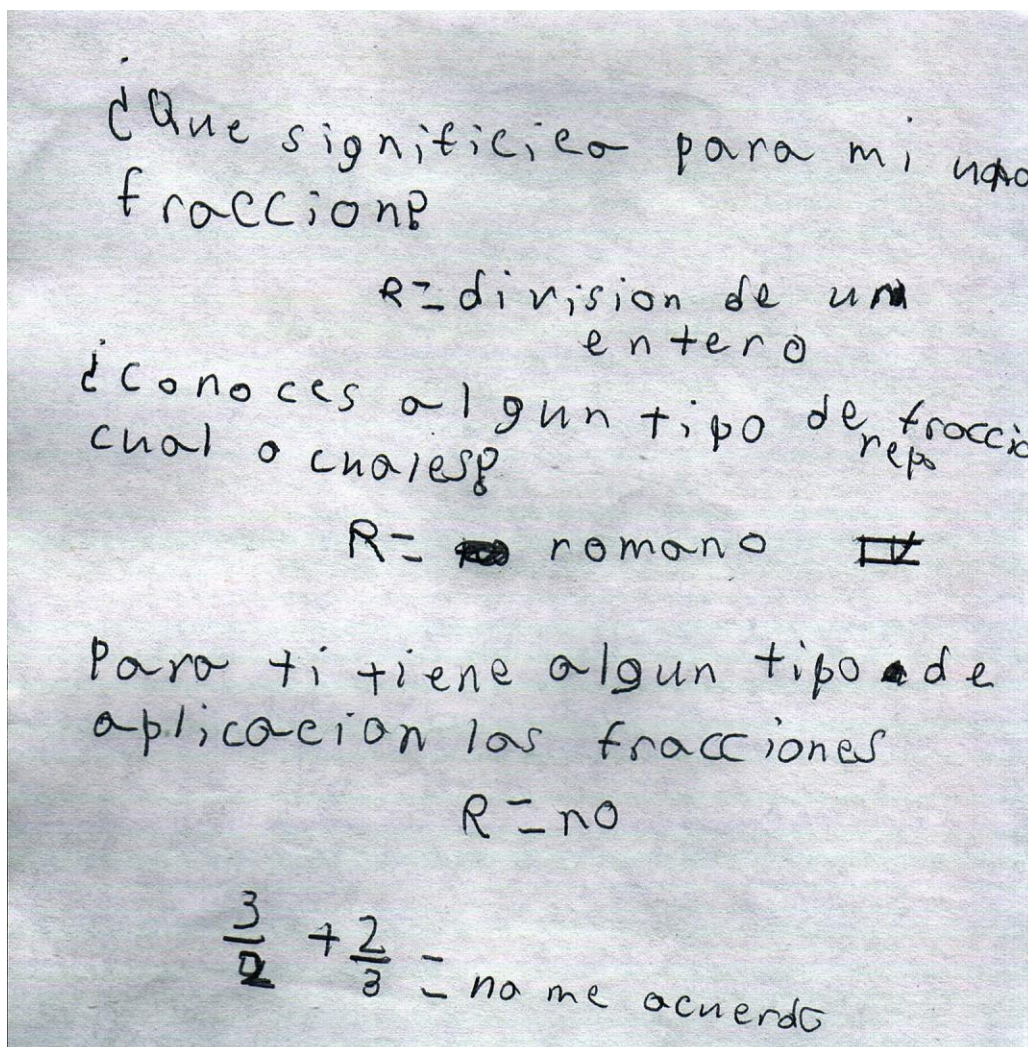 ¿Que significica para mi una
fraccion?
R= division de un
entero
¿Conoces algun tipo de fraccio
repo
cual o cuales?
R= romano IV
Para ti tiene algun tipo de
aplicacion las fracciones
R= no
3/2 + 2/3 = no me acuerdo